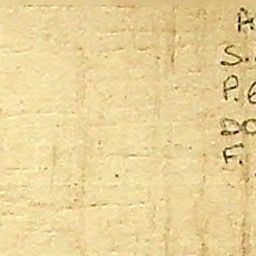 A
S.
P. 6
DO
F.